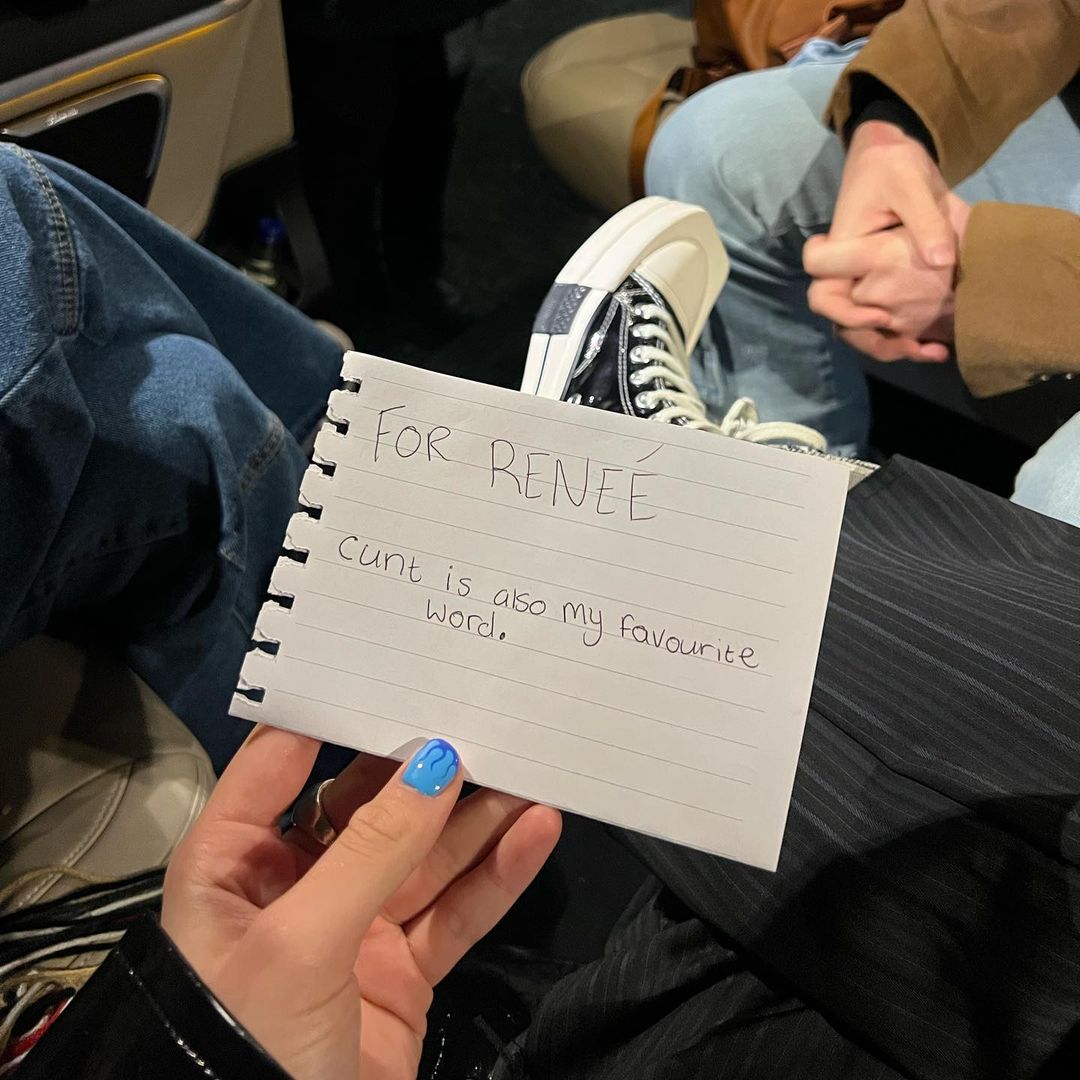 FOR RENEÉ
cunt is also my favourite
word.